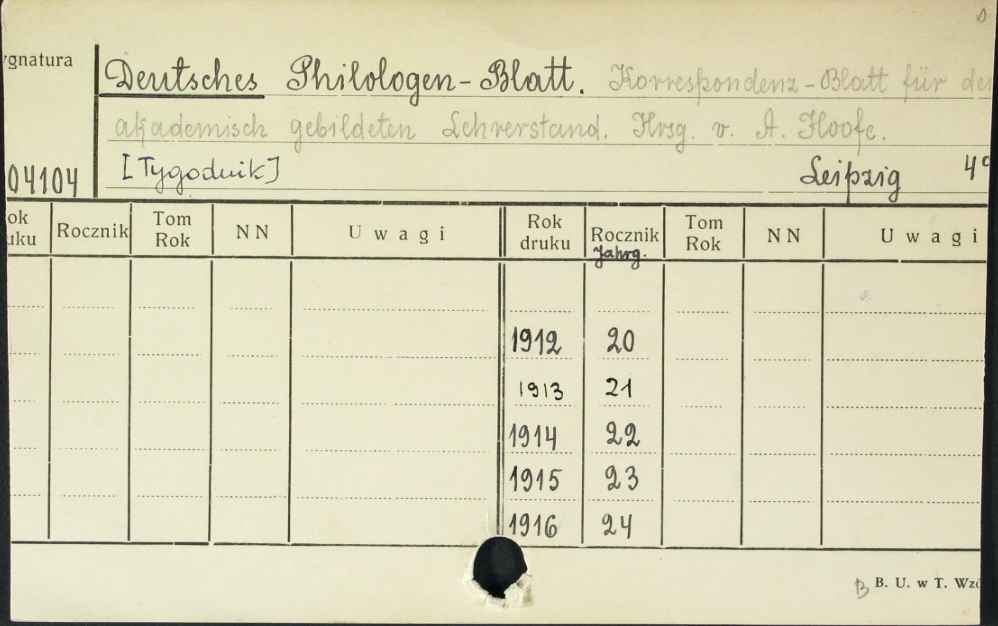 ygnatura
Deutsches Philologen-Blatt. Korrespondenz-Blatt für den
akademisch gebildeten Lehrerstand. Hrsg. v. A. Hoofe.
04104 [Tygodnik] Leipzig 4°
ok Rocznik Tom NN Uwagi Rok Rocznik Tom NN Uwagi
uku Rok druku Jahrg. Rok
1912 20
1913 21
1914 22
1915 23
1916 24
B B. U. w T. Wzó